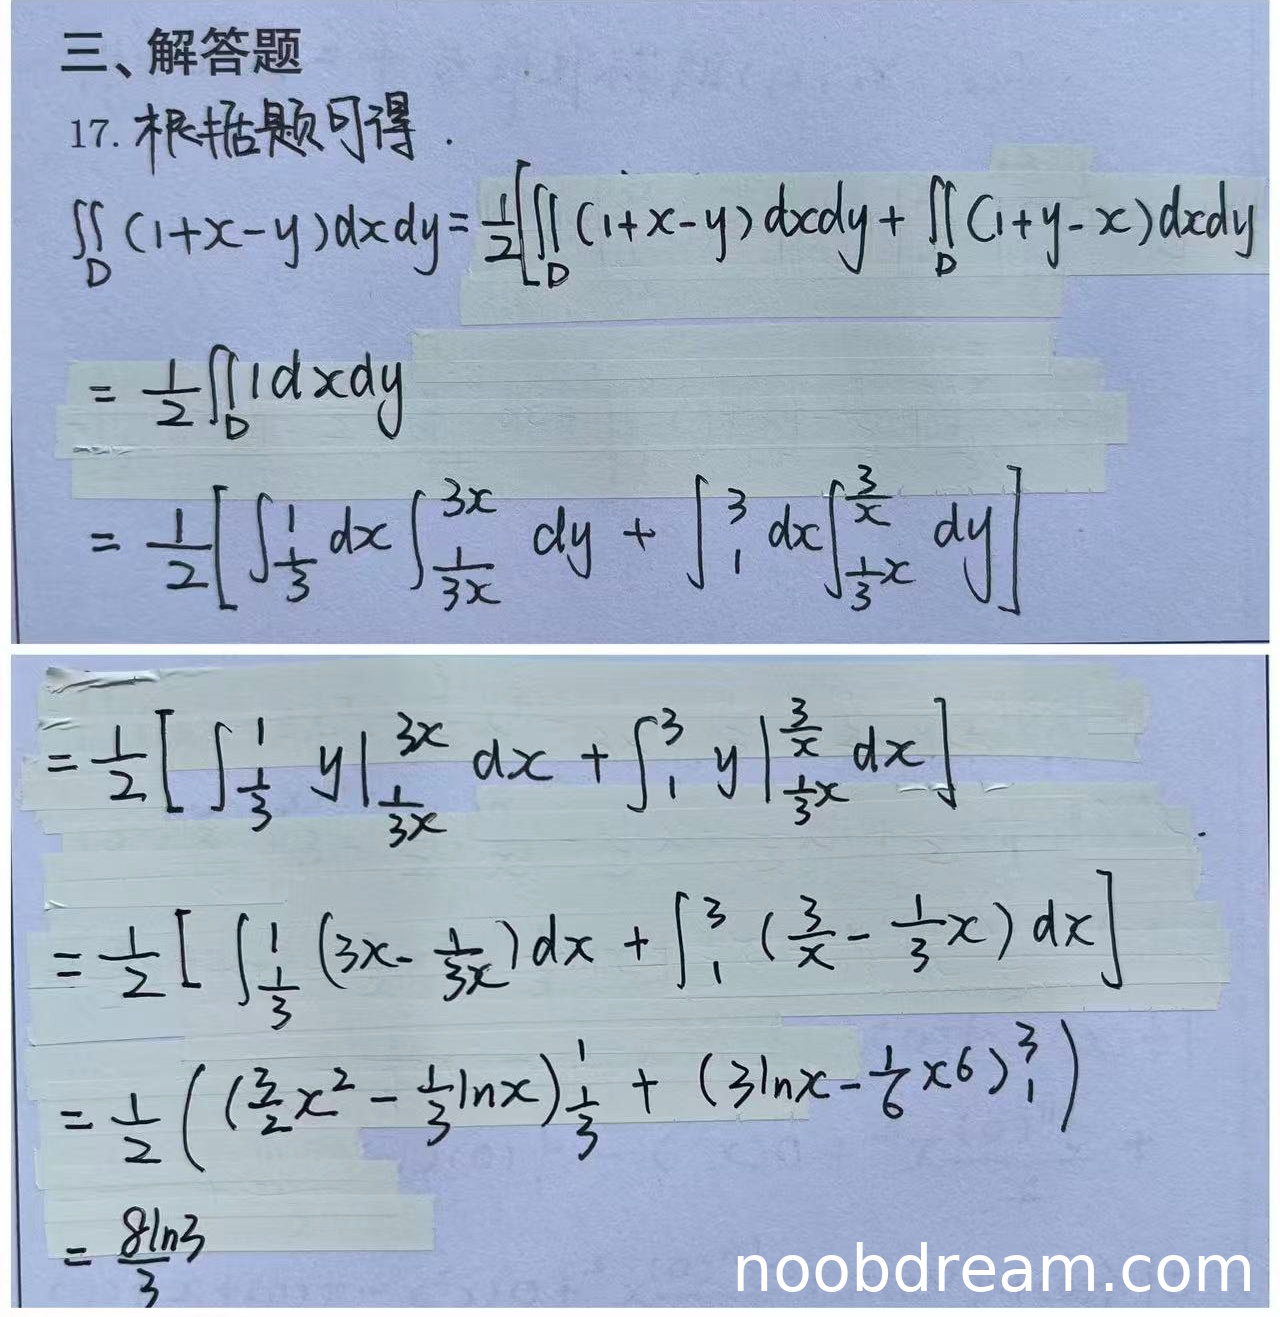 三、解答题
17. 根据题可得.
∬_D (1+x-y)dxdy = 1/2[∬_D (1+x-y)dxdy + ∬_D (1+y-x)dxdy
= 1/2 ∬_D 1dxdy
= 1/2 [∫_{1/3}^{1} dx ∫_{1/3x}^{3x} dy + ∫_1^3 dx ∫_{1/3 x}^{3/x} dy]
= 1/2 [∫_{1/3}^{1} y|_{1/3x}^{3x} dx + ∫_1^3 y|_{1/3 x}^{3/x} dx]
= 1/2 [∫_{1/3}^{1} (3x - 1/3x)dx + ∫_1^3 (3/x - 1/3 x)dx]
= 1/2 ((3/2 x² - 1/3 lnx)_{1/3}^{1} + (3lnx - 1/6 x6)_1^3)
= 8ln3/3
noobdream.com